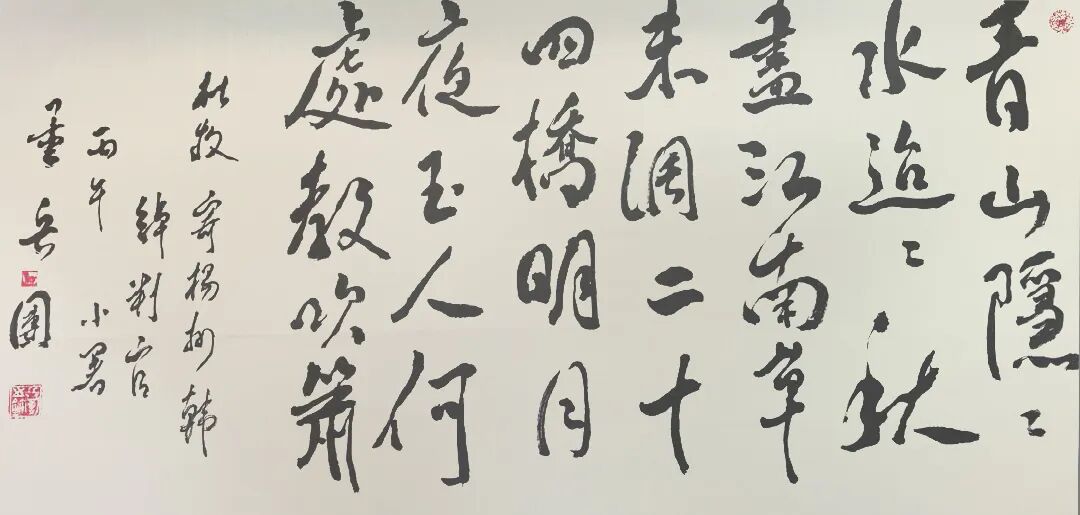 青山隱〻
水迢〻秋
盡江南草
未凋二十
四橋明月
夜玉人何
處教吹簫
杜牧寄楊州韓
綽判官
丙午小暑